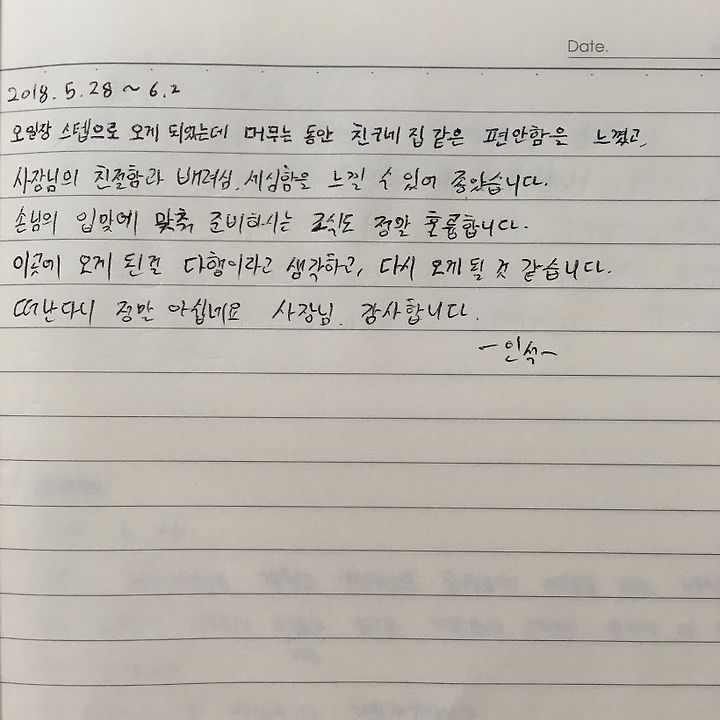 Date.
2018. 5. 28 ~ 6. 2
오일장 스텝으로 오게 되었는데 머무는 동안 친구네 집 같은 편안함을 느꼈고,
사장님의 친절함과 배려심, 세심함을 느낄 수 있어 좋았습니다.
손님의 입맛에 맞춰 준비하시는 조식도 정말 훌륭합니다.
이곳에 오게 된걸 다행이라고 생각하고, 다시 오게 될 것 같습니다.
떠난다니 정말 아쉽네요 사장님. 감사합니다.
- 인석 -